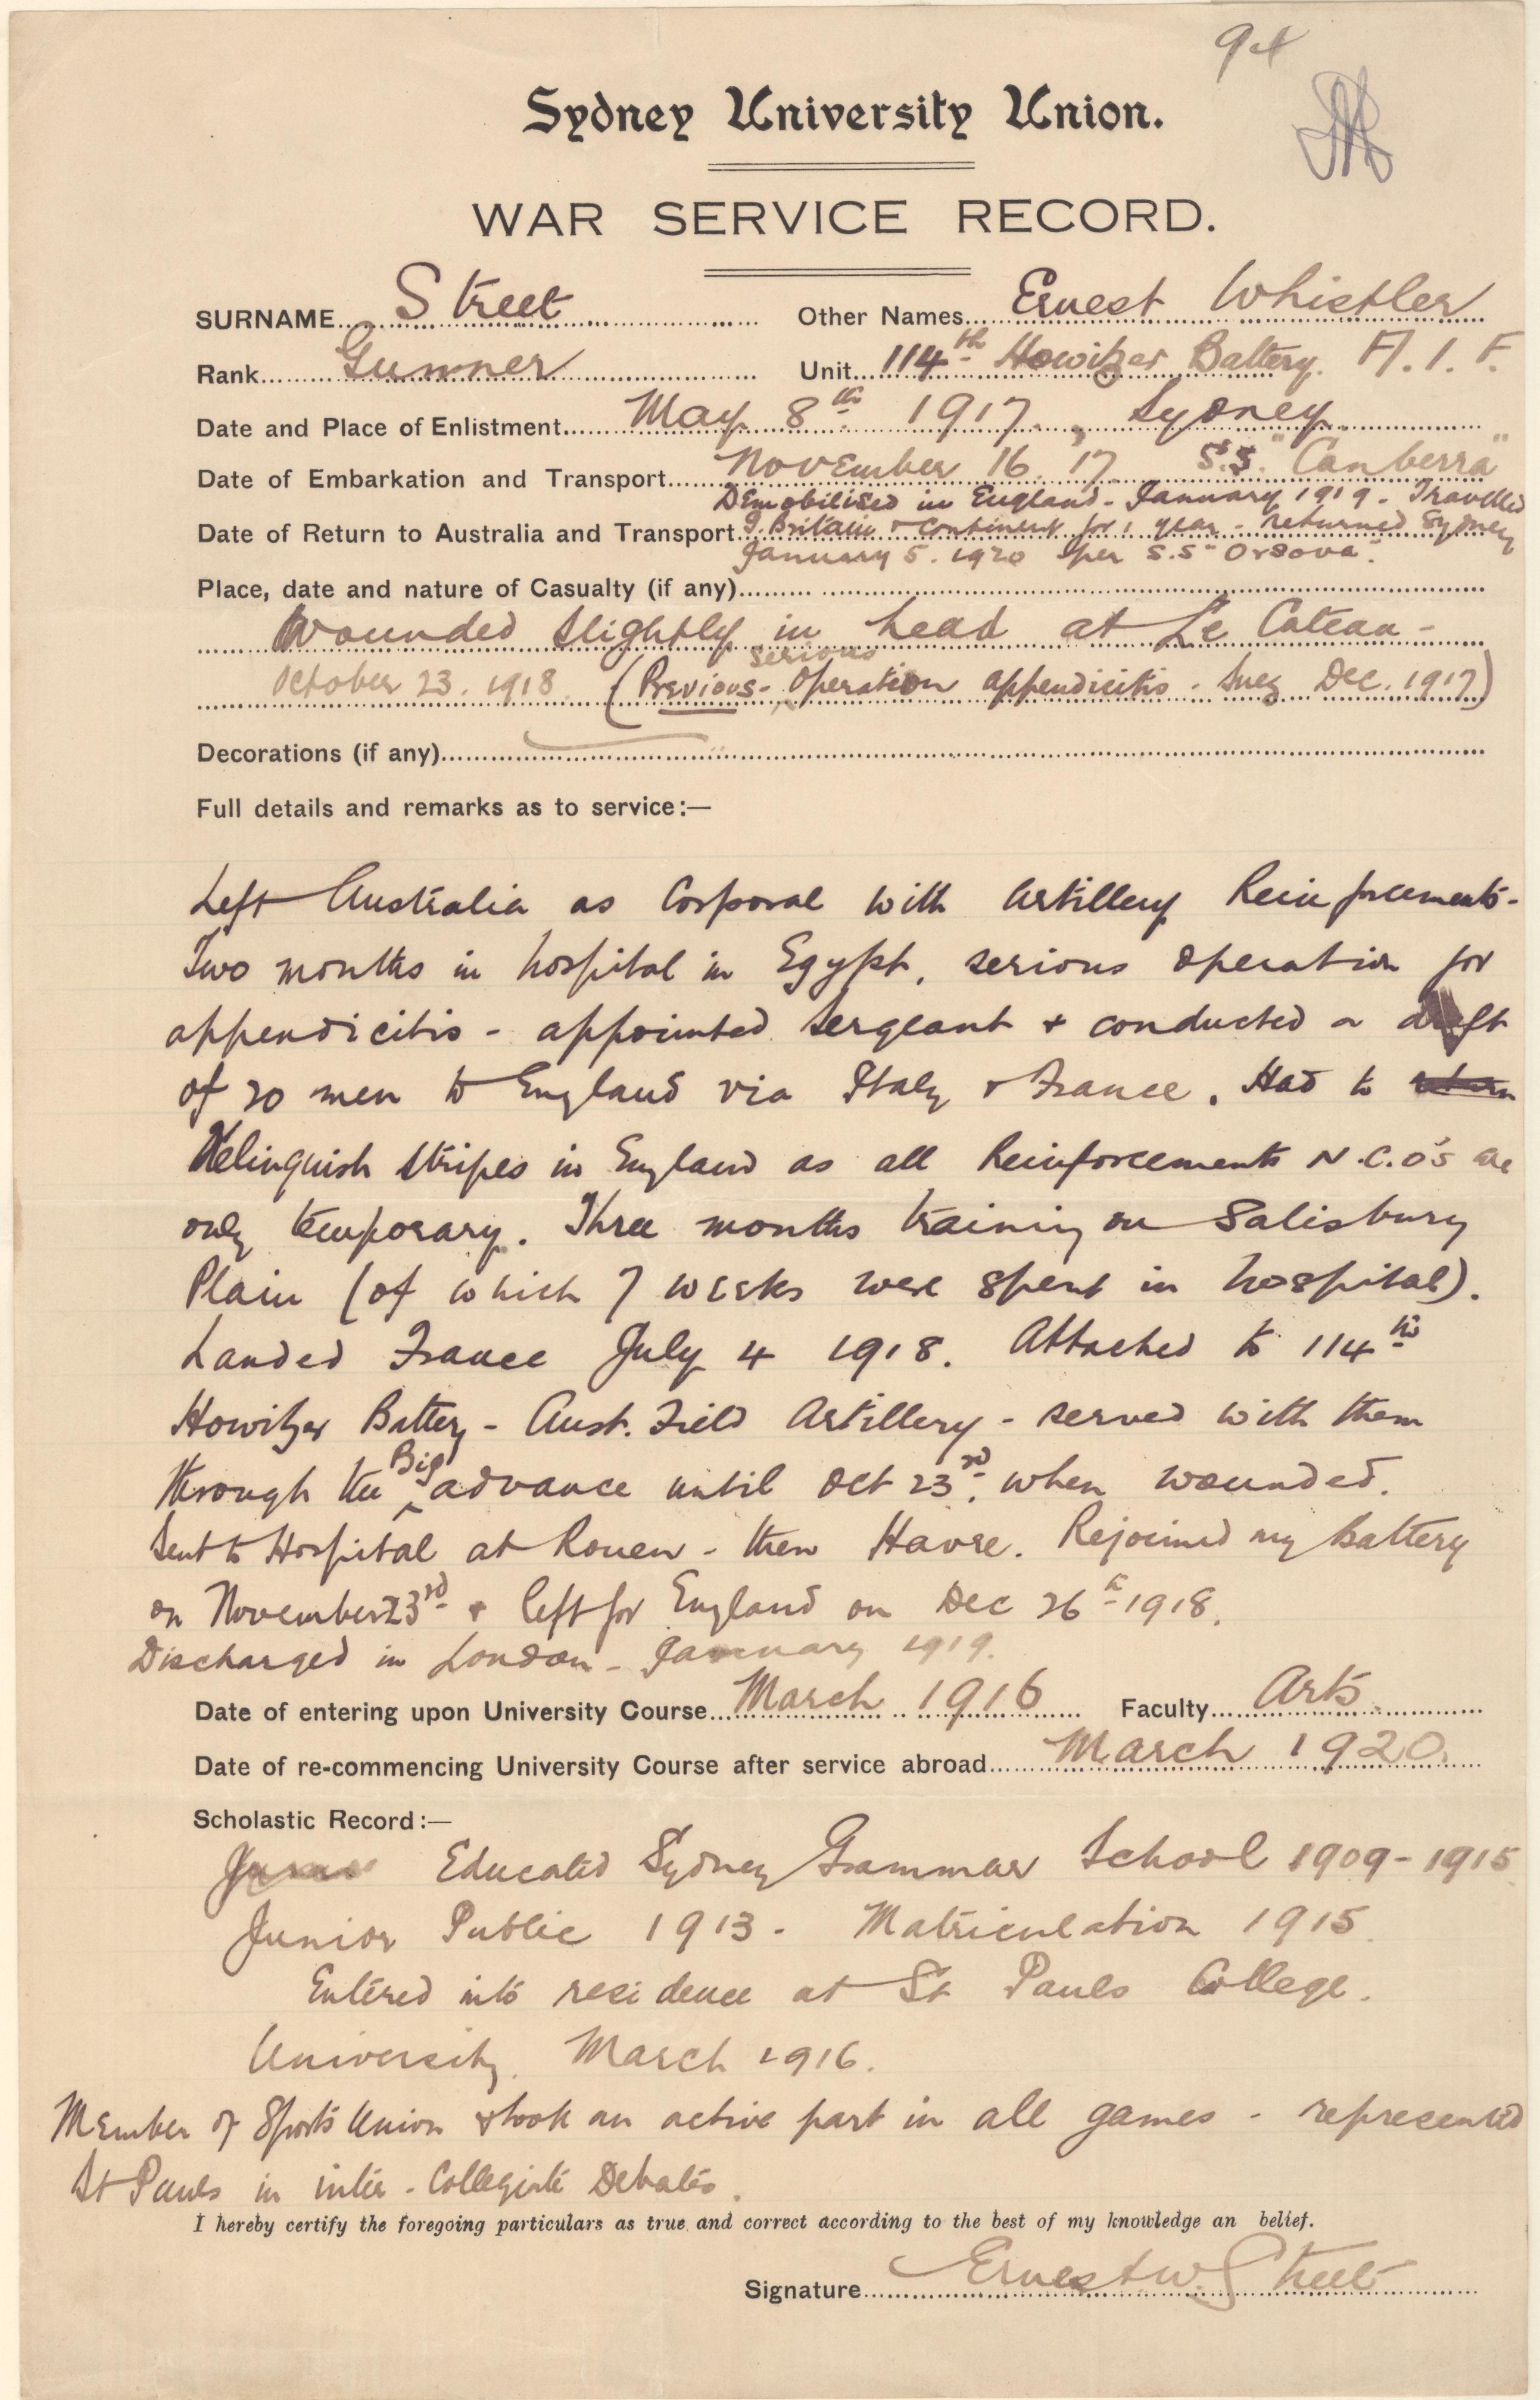 94
Sydney University Union.
WAR SERVICE RECORD.
SURNAME Street Other Names Ernest Whistler
Rank Gunner Unit 114th Howitzer Battery. A.I.F.
Date and Place of Enlistment May 8th 1917, Sydney.
Date of Embarkation and Transport November 16. 17 S.S. "Canberra"
Demobilised in England - January 1919 - Travelled
Date of Return to Australia and Transport G. Britain & Continent for 1 year - returned Sydney
January 5. 1920 per S.S. "Orsova".
Place, date and nature of Casualty (if any)
Wounded slightly in head at Le Cateau -
October 23. 1918. (Previous - serious Operation appendicitis - Suez Dec. 1917)
Decorations (if any)
Full details and remarks as to service:—
Left Australia as Corporal with Artillery Reinforcements -
Two months in hospital in Egypt, serious operation for
appendicitis - appointed Sergeant & conducted a draft
of 20 men to England via Italy & France. Had to
relinquish stripes in England as all Reinforcements N.C.O's are
only temporary. Three months training on Salisbury
Plain (of which 7 weeks were spent in hospital).
Landed France July 4 1918. Attached to 114th
Howitzer Battery - Aust. Field Artillery - served with them
through the Big advance until Oct 23rd. when wounded.
Sent to Hospital at Rouen - then Havre. Rejoined my Battery
on November 23rd & left for England on Dec 26th 1918.
Discharged in London - January 1919.
Date of entering upon University Course March 1916 Faculty Arts
Date of re-commencing University Course after service abroad March 1920.
Scholastic Record:—
Educated Sydney Grammar School 1909 - 1915
Junior Public 1913 - Matriculation 1915
Entered into residence at St Pauls College.
University. March 1916.
Member of Sports Union & took an active part in all games - represented
St Pauls in inter-Collegiate Debates.
I hereby certify the foregoing particulars as true and correct according to the best of my knowledge an belief.
Signature Ernest W. Street